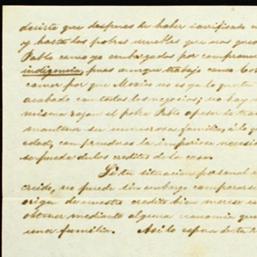 decirte que despues de haber sacrificado
y hasta los pobres muebles que nos que
Pablo camas ya embargados por compromi
indigencia, pues aunque trabaja como
comer por que Mexico no es ya lo que
acabado con todos los negocios; no hay
misma razon el pobre Pablo apesar de tra
mantener su numerosa familia; á lo q
edad, con prendas la imperiosa necesi
se pueda de los creditos de la casa.
Esta situacion personal
creido, no puede sin embargo compararse
origen de nuestro credito bien merece
obtener mediante alguna economia que
una familia. Asi lo espero de tu